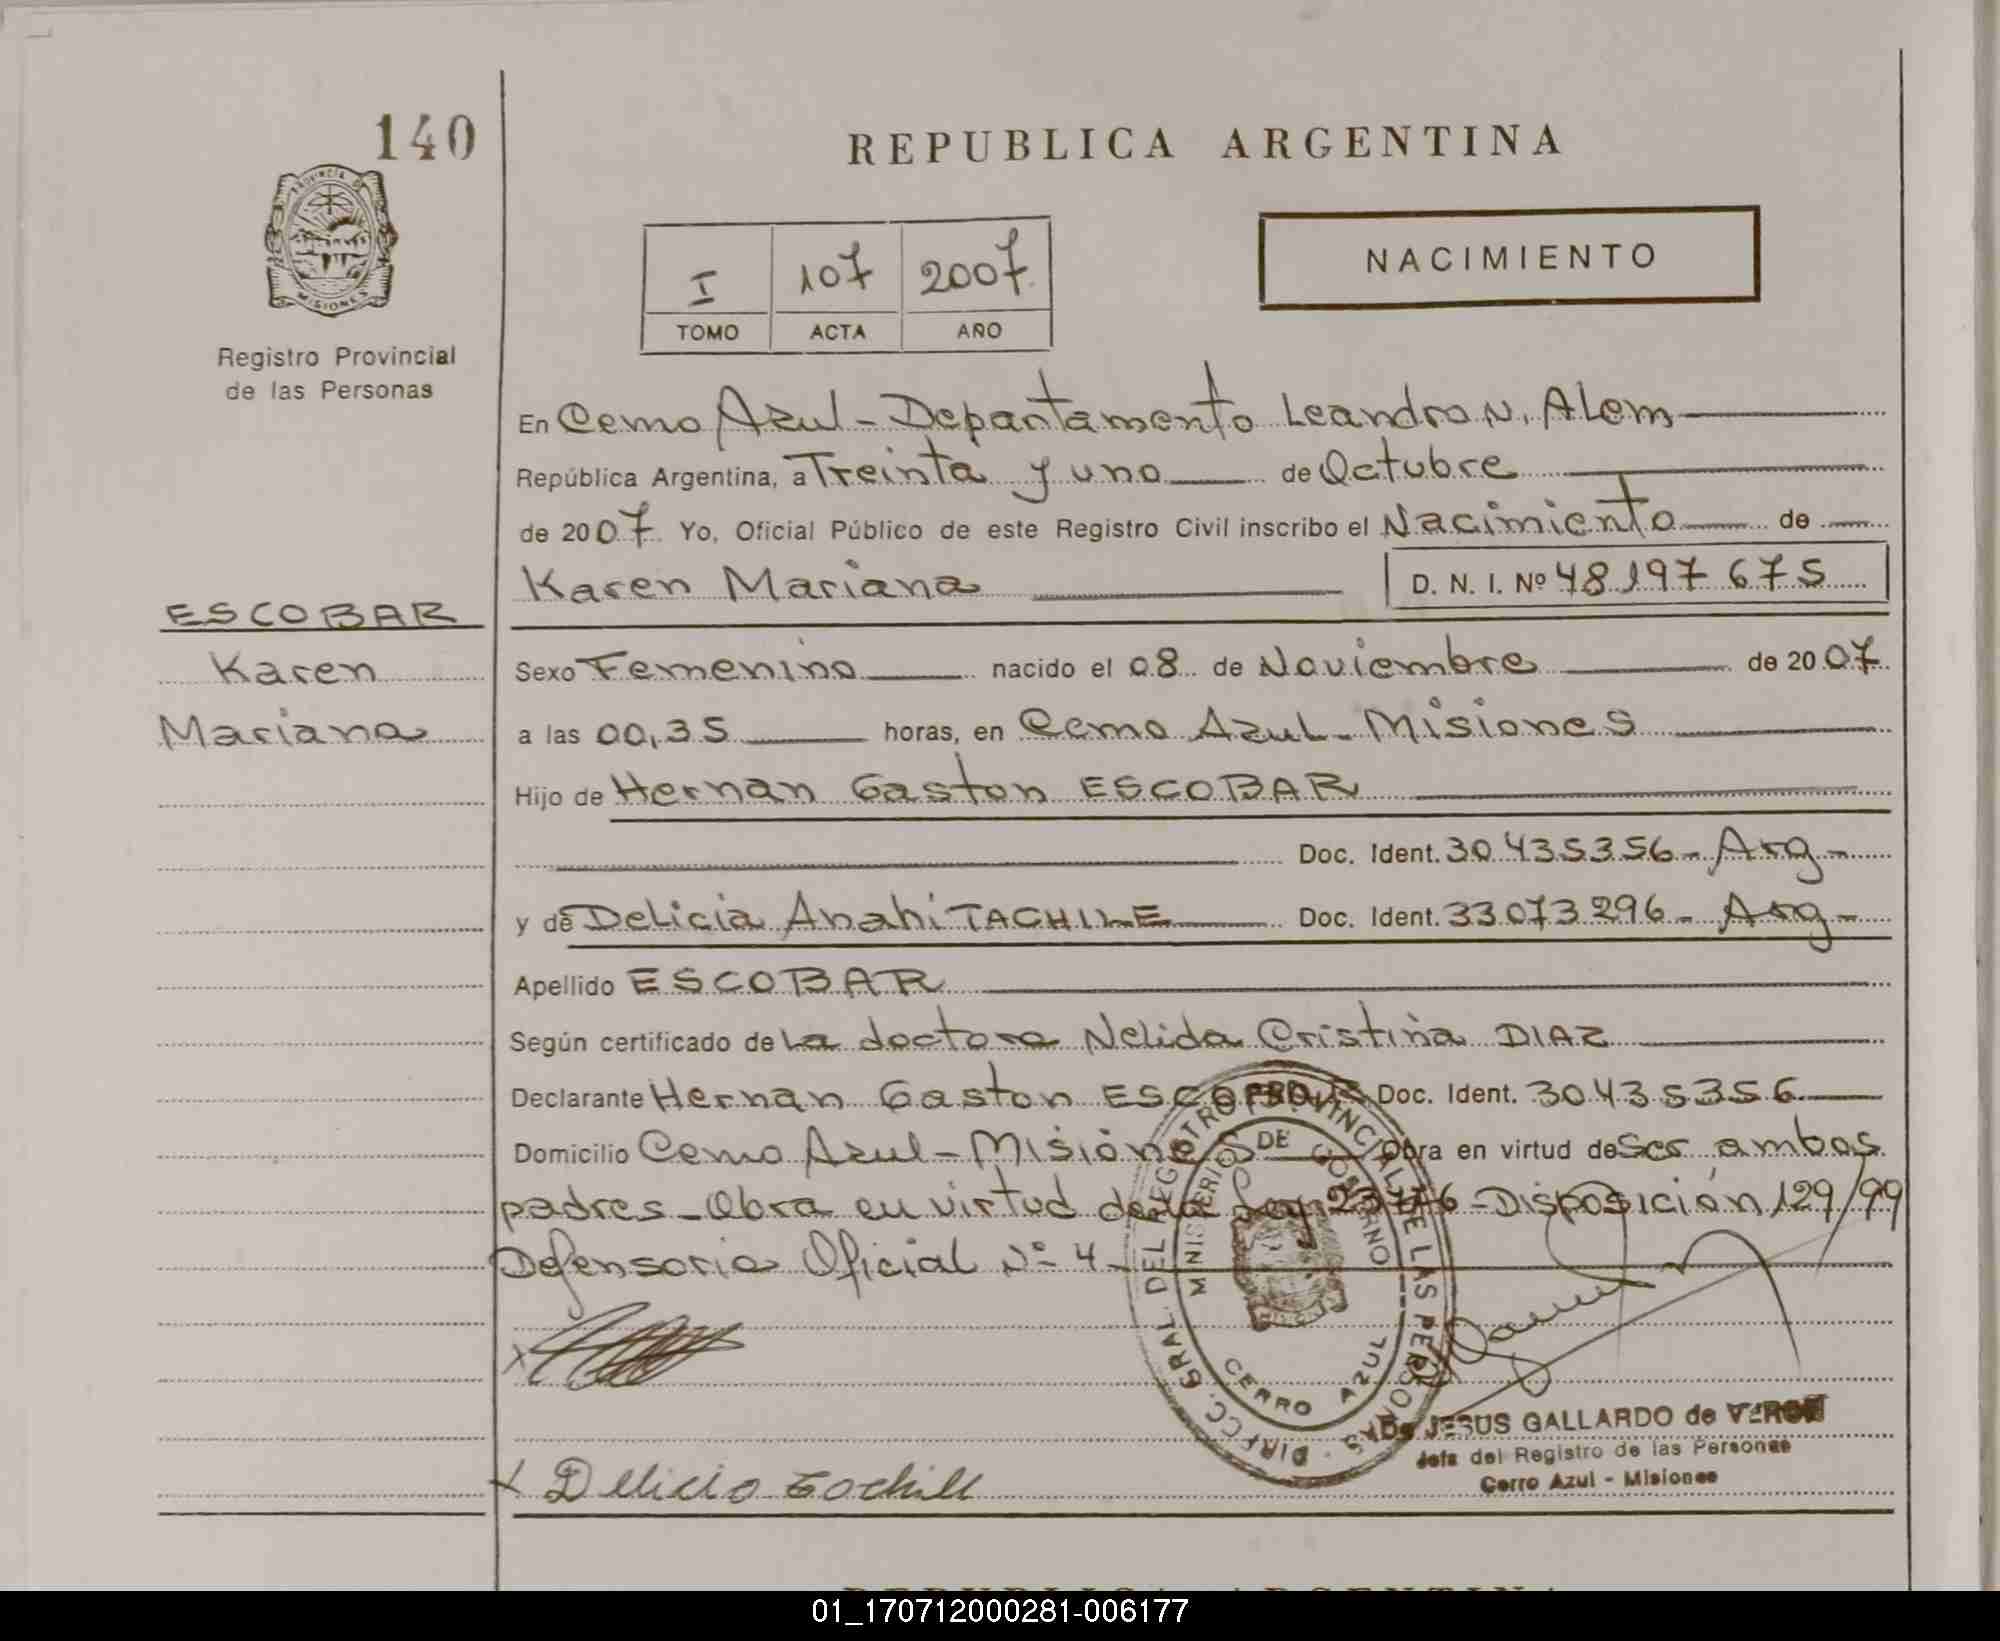 140
REPUBLICA ARGENTINA
PROVINCIA DE
MISIONES
I 107 2007
TOMO ACTA AÑO
NACIMIENTO
Registro Provincial
de las Personas
En Cerro Azul - Departamento Leandro N. Alem
República Argentina, a Treinta y uno de Octubre
de 2007 Yo, Oficial Público de este Registro Civil inscribo el Nacimiento de
Karen Mariana D. N. I. Nº 48197675
ESCOBAR
Karen
Mariana
Sexo Femenino nacido el 08 de Noviembre de 2007
a las 00,35 horas, en Cerro Azul - Misiones
Hijo de Hernan Gaston ESCOBAR
Doc. Ident. 30435356 - Arg -
y de Delicia Anahi TACHILE Doc. Ident. 33073296 - Arg -
Apellido ESCOBAR
Según certificado de La doctora Nelida Cristina DIAZ
Declarante Hernan Gaston ESCOBAR Doc. Ident. 30435356
Domicilio Cerro Azul - Misiones Obra en virtud de ser ambos
padres - Obra en virtud de la Ley 23776 - Disposición 129/99
Defensoria Oficial Nº 4
DIRECC. GRAL. DEL REGISTRO PROVINCIAL DE LAS PERSONAS
MINISTERIO DE GOBIERNO
CERRO AZUL
x
JESUS GALLARDO de
Jefa del Registro de las Personas
Cerro Azul - Misiones
x Delicia Tachile
REPUBLICA ARGENTINA
01_170712000281-006177